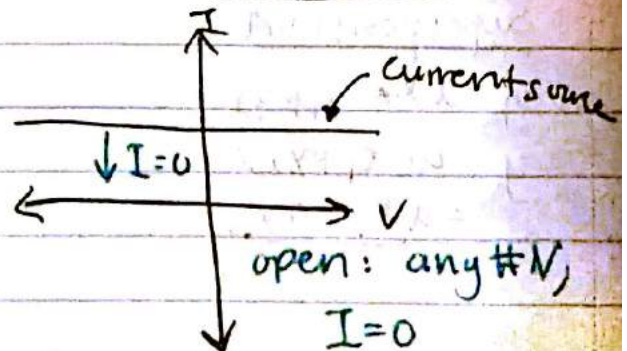 I
current source
↓ I=0
V
open: any # V,
I=0